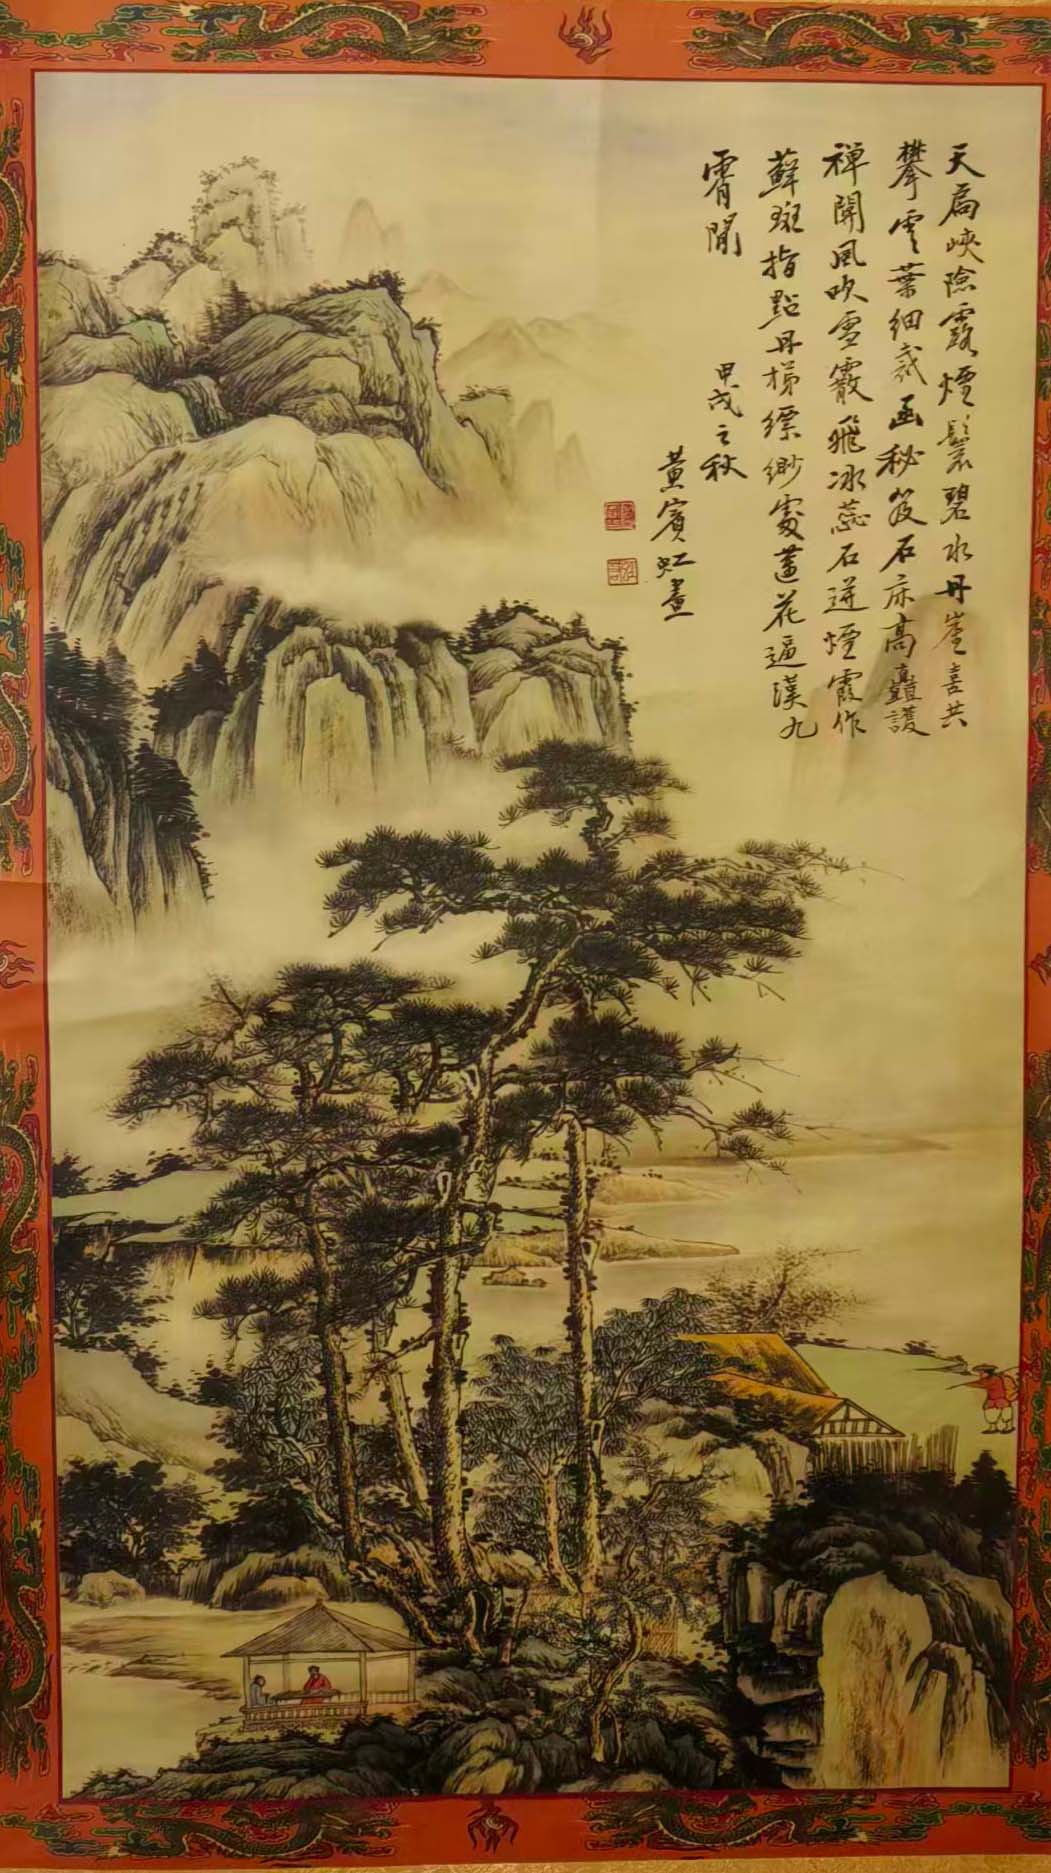 天扃峽險露煙鬟碧水丹崖喜共
攀雲葉細裁函秘笈石床高矗護
禪關風吹雪霰飛冰蕊石迸煙霞作
蘚斑指點丹梯縹緲處蓮花逼漢九
霄間
甲戌之秋
黃賓虹畫